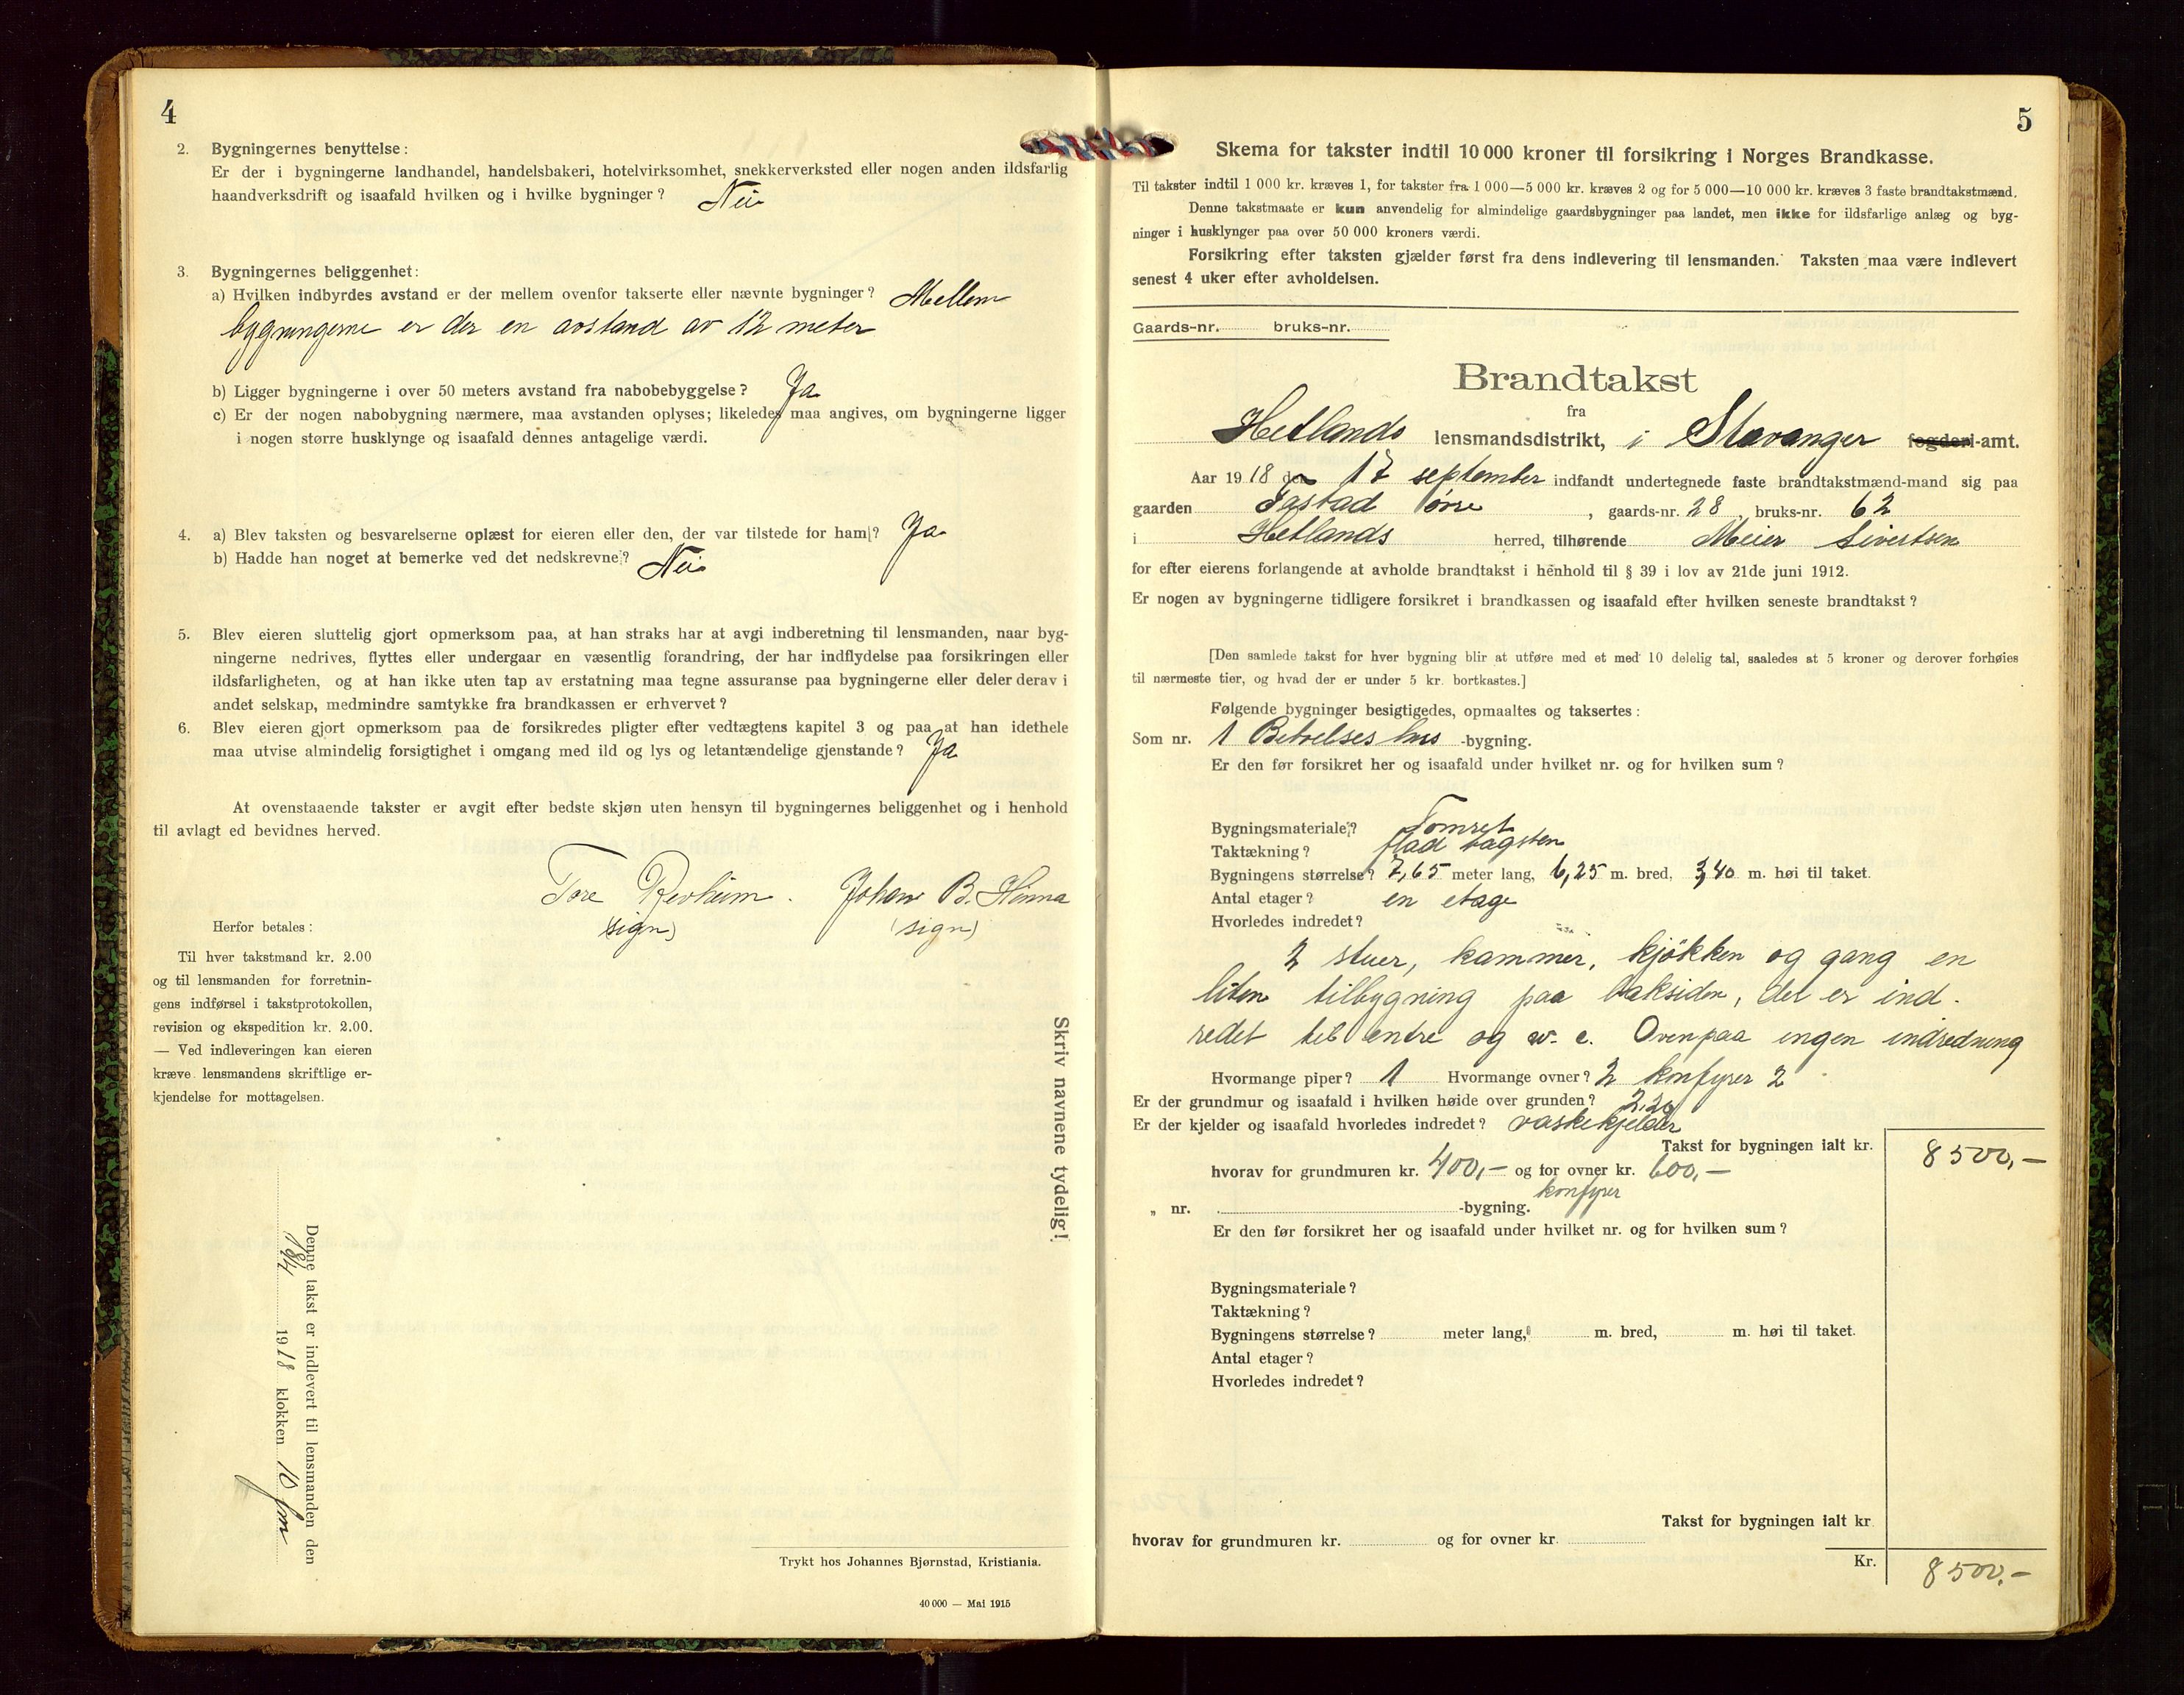 4
2. Bygningernes benyttelse:
Er der i bygningerne landhandel, handelsbakeri, hotelvirksomhet, snekkerverksted eller nogen anden ildsfarlig
haandverksdrift og isaafald hvilken og i hvilke bygninger? Nei
3. Bygningernes beliggenhet:
a) Hvilken indbyrdes avstand er der mellem ovenfor takserte eller nævnte bygninger? Mellem
bygningerne er der en avstand av 12 meter
b) Ligger bygningerne i over 50 meters avstand fra nabobebyggelse? Ja
c) Er der nogen nabobygning nærmere, maa avstanden oplyses; likeledes maa angives, om bygningerne ligger
i nogen større husklynge og isaafald dennes antagelige værdi.
4. a) Blev taksten og besvarelserne oplæst for eieren eller den, der var tilstede for ham? Ja
b) Hadde han noget at bemerke ved det nedskrevne? Nei
5. Blev eieren sluttelig gjort opmerksom paa, at han straks har at avgi indberetning til lensmanden, naar byg-
ningerne nedrives, flyttes eller undergaar en væsentlig forandring, der har indflydelse paa forsikringen eller
ildsfarligheten, og at han ikke uten tap av erstatning maa tegne assuranse paa bygningerne eller deler derav i
andet selskap, medmindre samtykke fra brandkassen er erhvervet?
6. Blev eieren gjort opmerksom paa de forsikredes pligter efter vedtægtens kapitel 3 og paa at han idethele
maa utvise almindelig forsigtighet i omgang med ild og lys og letantændelige gjenstande? Ja
At ovenstaaende takster er avgit efter bedste skjøn uten hensyn til bygningernes beliggenhet og i henhold
til avlagt ed bevidnes herved.
Tore Revheim. Johan B. Hinna
(sign) (sign)
Herfor betales:
Til hver takstmand kr. 2.00
og til lensmanden for forretnin-
gens indførsel i takstprotokollen,
revision og ekspedition kr. 2.00.
— Ved indleveringen kan eieren
kræve lensmandens skriftlige er-
kjendelse for mottagelsen.
Skriv navnene tydelig!
Denne takst er indlevert til lensmanden den
1918 klokken 10 fm
Trykt hos Johannes Bjørnstad, Kristiania.
40 000 — Mai 1915
5
Skema for takster indtil 10 000 kroner til forsikring i Norges Brandkasse.
Til takster indtil 1 000 kr. kræves 1, for takster fra 1 000—5 000 kr. kræves 2 og for 5 000—10 000 kr. kræves 3 faste brandtakstmænd.
Denne takstmaate er kun anvendelig for almindelige gaardsbygninger paa landet, men ikke for ildsfarlige anlæg og byg-
ninger i husklynger paa over 50 000 kroners værdi.
Forsikring efter taksten gjælder først fra dens indlevering til lensmanden. Taksten maa være indlevert
senest 4 uker efter avholdelsen.
Gaards-nr. bruks-nr.
Brandtakst
fra
Hetlands lensmandsdistrikt, i Stavanger fogderi-amt.
Aar 1918 den 17 september indfandt undertegnede faste brandtakstmænd-mand sig paa
gaarden Tastad , gaards-nr. 28, bruks-nr. 62
i Hetlands herred, tilhørende Meier Sivertsen
for efter eierens forlangende at avholde brandtakst i henhold til § 39 i lov av 21de juni 1912.
Er nogen av bygningerne tidligere forsikret i brandkassen og isaafald efter hvilken seneste brandtakst?
[Den samlede takst for hver bygning blir at utføre med et med 10 delelig tal, saaledes at 5 kroner og derover forhøies
til nærmeste tier, og hvad der er under 5 kr. bortkastes.]
Følgende bygninger besigtigedes, opmaaltes og taksertes:
Som nr. 1 hus -bygning.
Er den før forsikret her og isaafald under hvilket nr. og for hvilken sum?
Bygningsmateriale? Tomret
Taktækning? flad tagsten
Bygningens størrelse? 7,65 meter lang, 6,25 m. bred, 3,40 m. høi til taket.
Antal etager? en etage
Hvorledes indredet?
2 stuer, kammer, kjøkken og gang en
liten tilbygning paa baksiden, det er ind-
redet til entre og w. c. Ovenpaa ingen indredning
Hvormange piper? 1 Hvormange ovner? 2 konfyrer 2
Er der grundmur og isaafald i hvilken høide over grunden? 2,20
Er der kjelder og isaafald hvorledes indredet? vaskekjelder
Takst for bygningen ialt kr. 8500,—
hvorav for grundmuren kr. 400,— og for ovner kr. 600,—
konfyrer
„ nr. -bygning.
Er den før forsikret her og isaafald under hvilket nr. og for hvilken sum?
Bygningsmateriale?
Taktækning?
Bygningens størrelse? meter lang, m. bred, m. høi til taket.
Antal etager?
Hvorledes indredet?
Takst for bygningen ialt kr
hvorav for grundmuren kr. og for ovner kr.
Kr. 8500,-